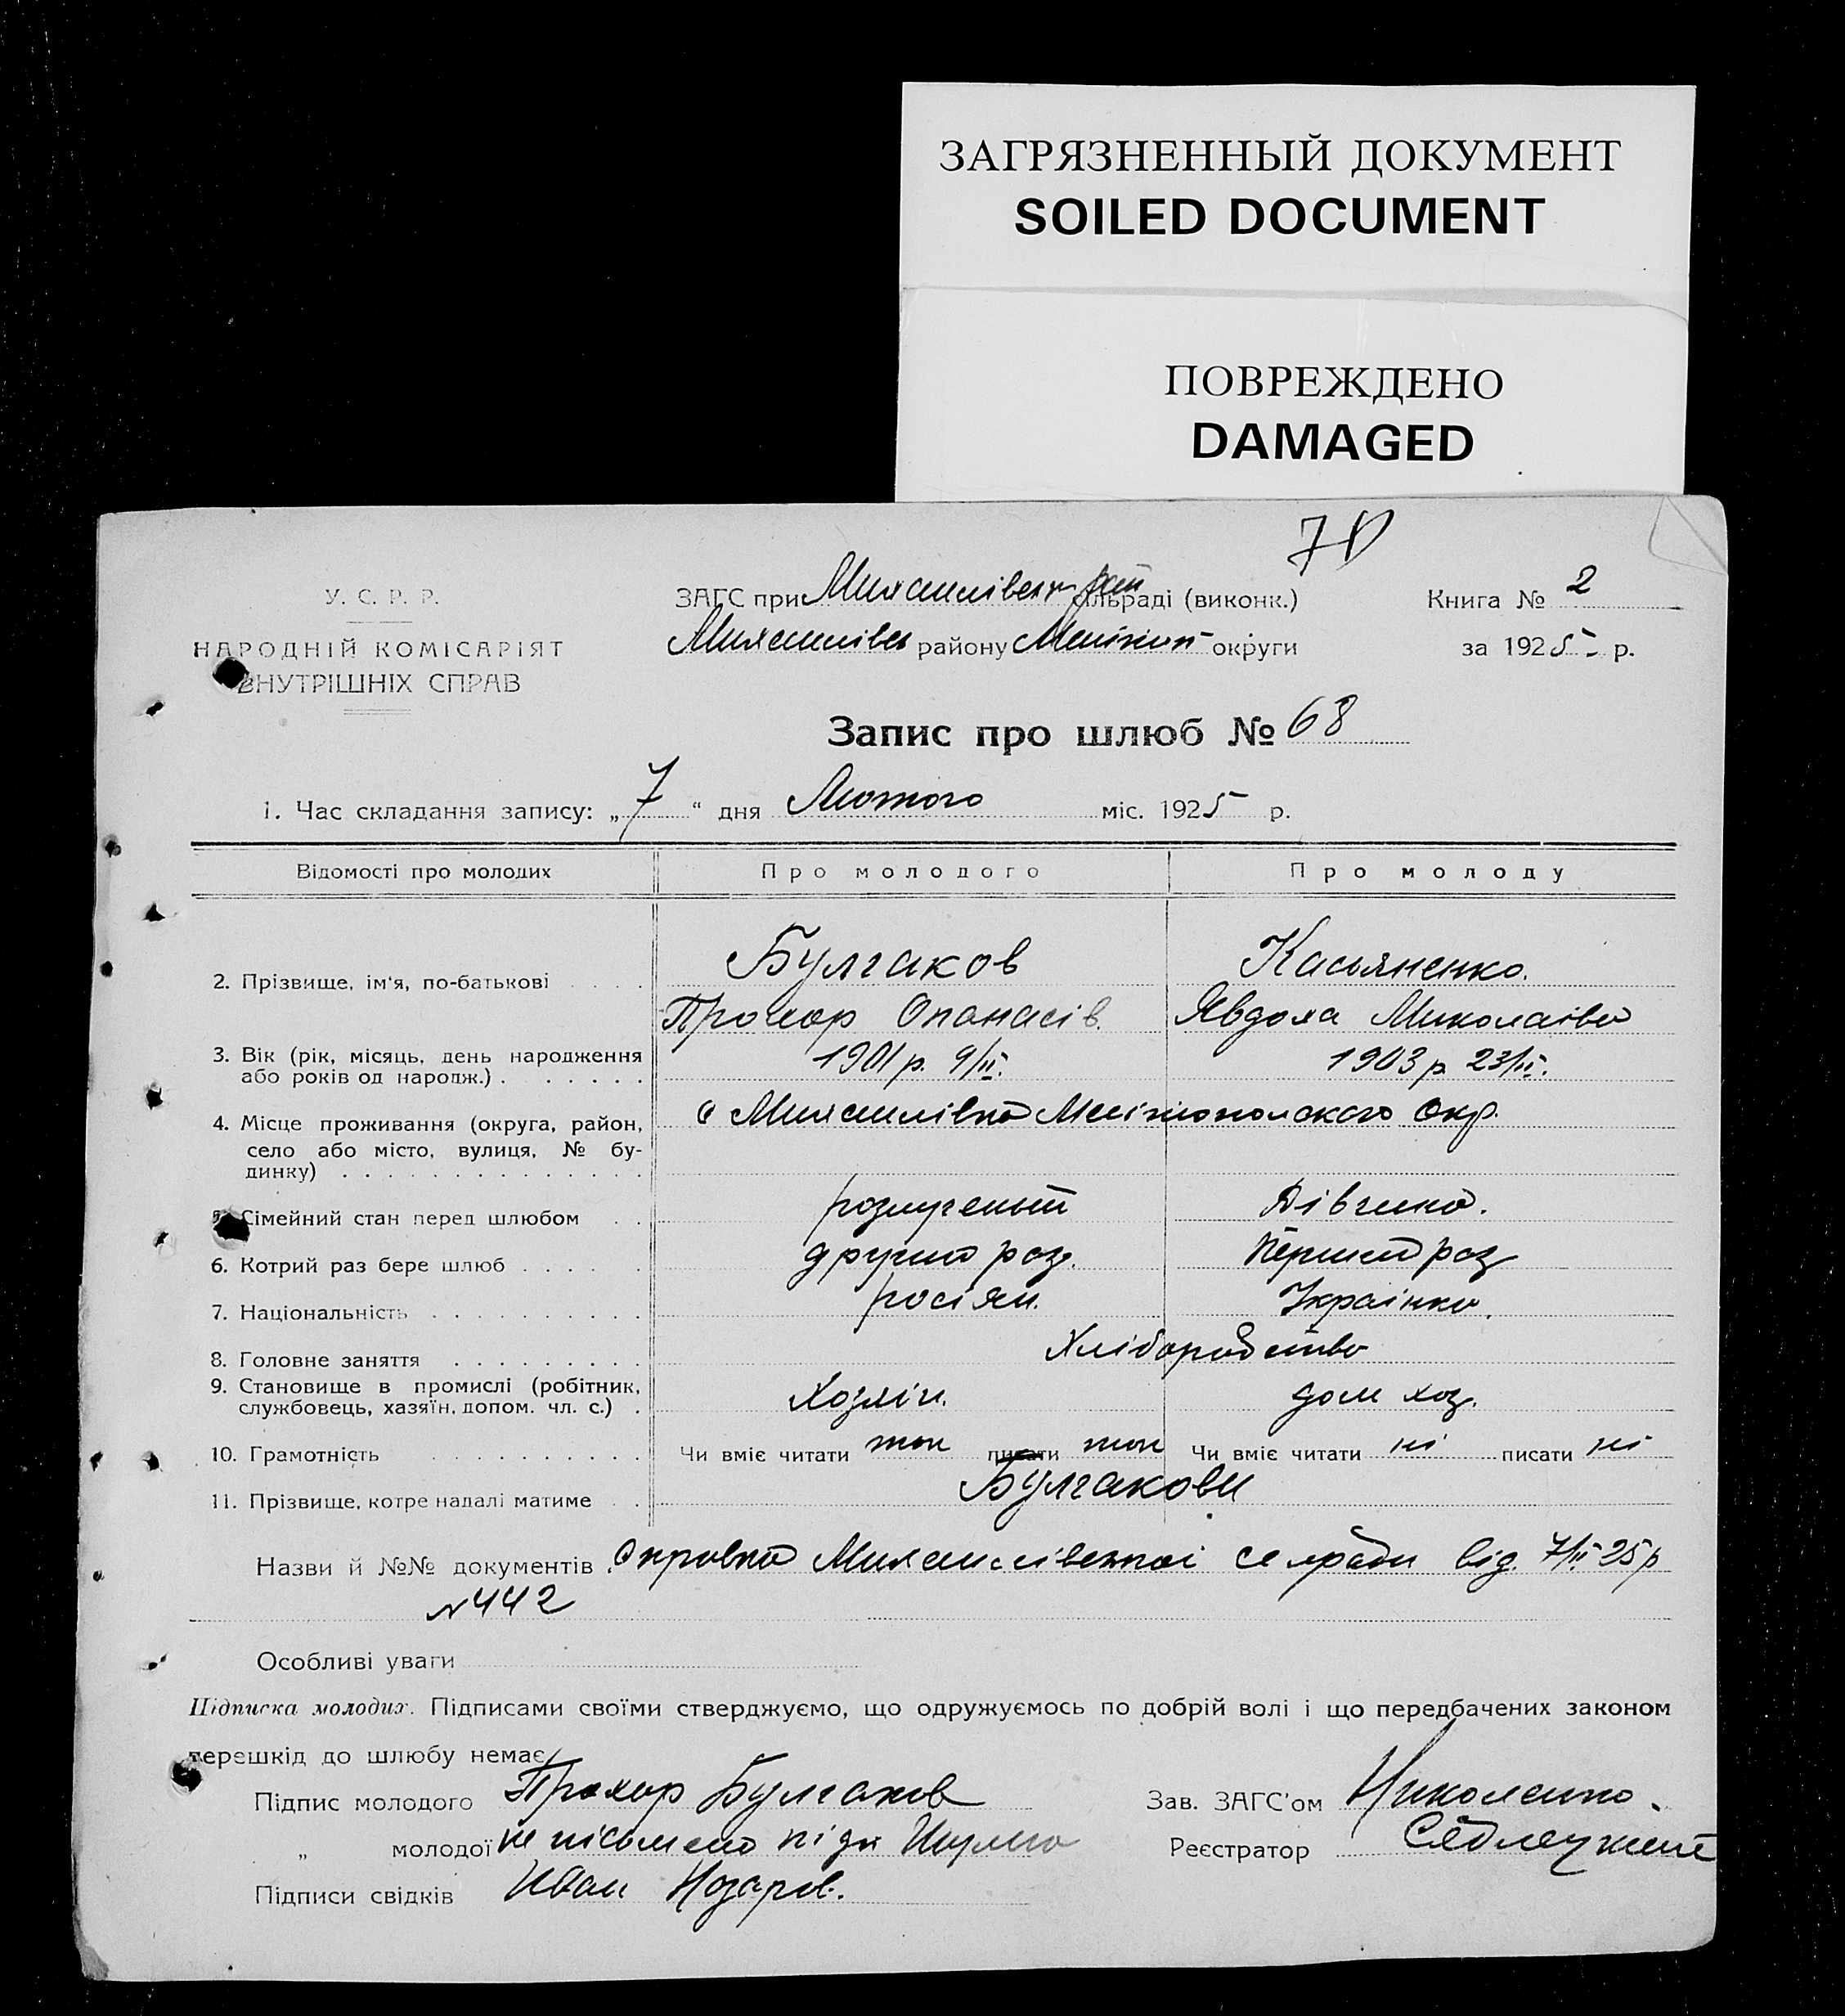 ЗАГРЯЗНЕННЫЙ ДОКУМЕНТ
SOILED DOCUMENT
ПОВРЕЖДЕНО
DAMAGED
У. С. Р. Р.
НАРОДНІЙ КОМІСАРІЯТ
ВНУТРІШНІХ СПРАВ
70
ЗАГС при Михайлівськ рай сільраді (виконк.)
Книга № 2
Михайлівськ району Меліт округи
за 1925 р.
Запис про шлюб № 68
1. Час складання запису: „7“ дня Лютого міс. 1925 р.
Відомості про молодих Про молодого Про молоду
2. Прізвище, ім'я, по-батькові Булгаков Касьяненко.
Прохор Опанасів. Явдоха Миколаівн
3. Вік (рік, місяць, день народження 1901 р. 9/II. 1903 р 23/II.
або років од народж.)
4. Місце проживання (округа, район, с Михайлівка Мелітопольского Окр.
село або місто, вулиця, № бу-
динку)
5. Сімейний стан перед шлюбом розлучений Дівчина.
6. Котрий раз бере шлюб другий раз. Перший раз
7. Національність росіян. Українка.
8. Головне заняття Хліборобство
9. Становище в промислі (робітник, Хозяін. дом хоз.
службовець, хазяїн, допом. чл. с.)
10. Грамотність Чи вміє читати так писати так Чи вміє читати ні писати ні
11. Прізвище, котре надалі матиме Булгакови
Назви й №№ документів Справка Михайлівської сельради від. 7/II 25 р
№ 442
Особливі уваги
Підписка молодих. Підписами своїми стверджуємо, що одружуємось по добрій волі і що передбачених законом
перешкід до шлюбу немає
Підпис молодого Прохор Булгаков
Зав. ЗАГС'ом Николенко.
„ молодої не пісьмена
Реєстратор
Підписи свідків Иван Назаров.